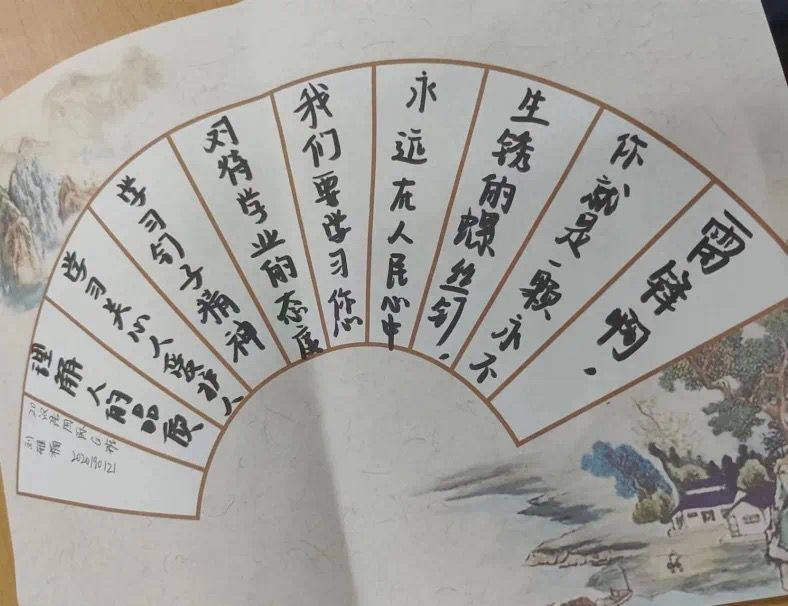 雷锋啊，
你就是一颗永不
生锈的螺丝钉，
永远在人民心中
我们要学习您
对待学业的态度
学习钉子精神
学习关心人爱护人
理解人的品质
20汉班
2020190121